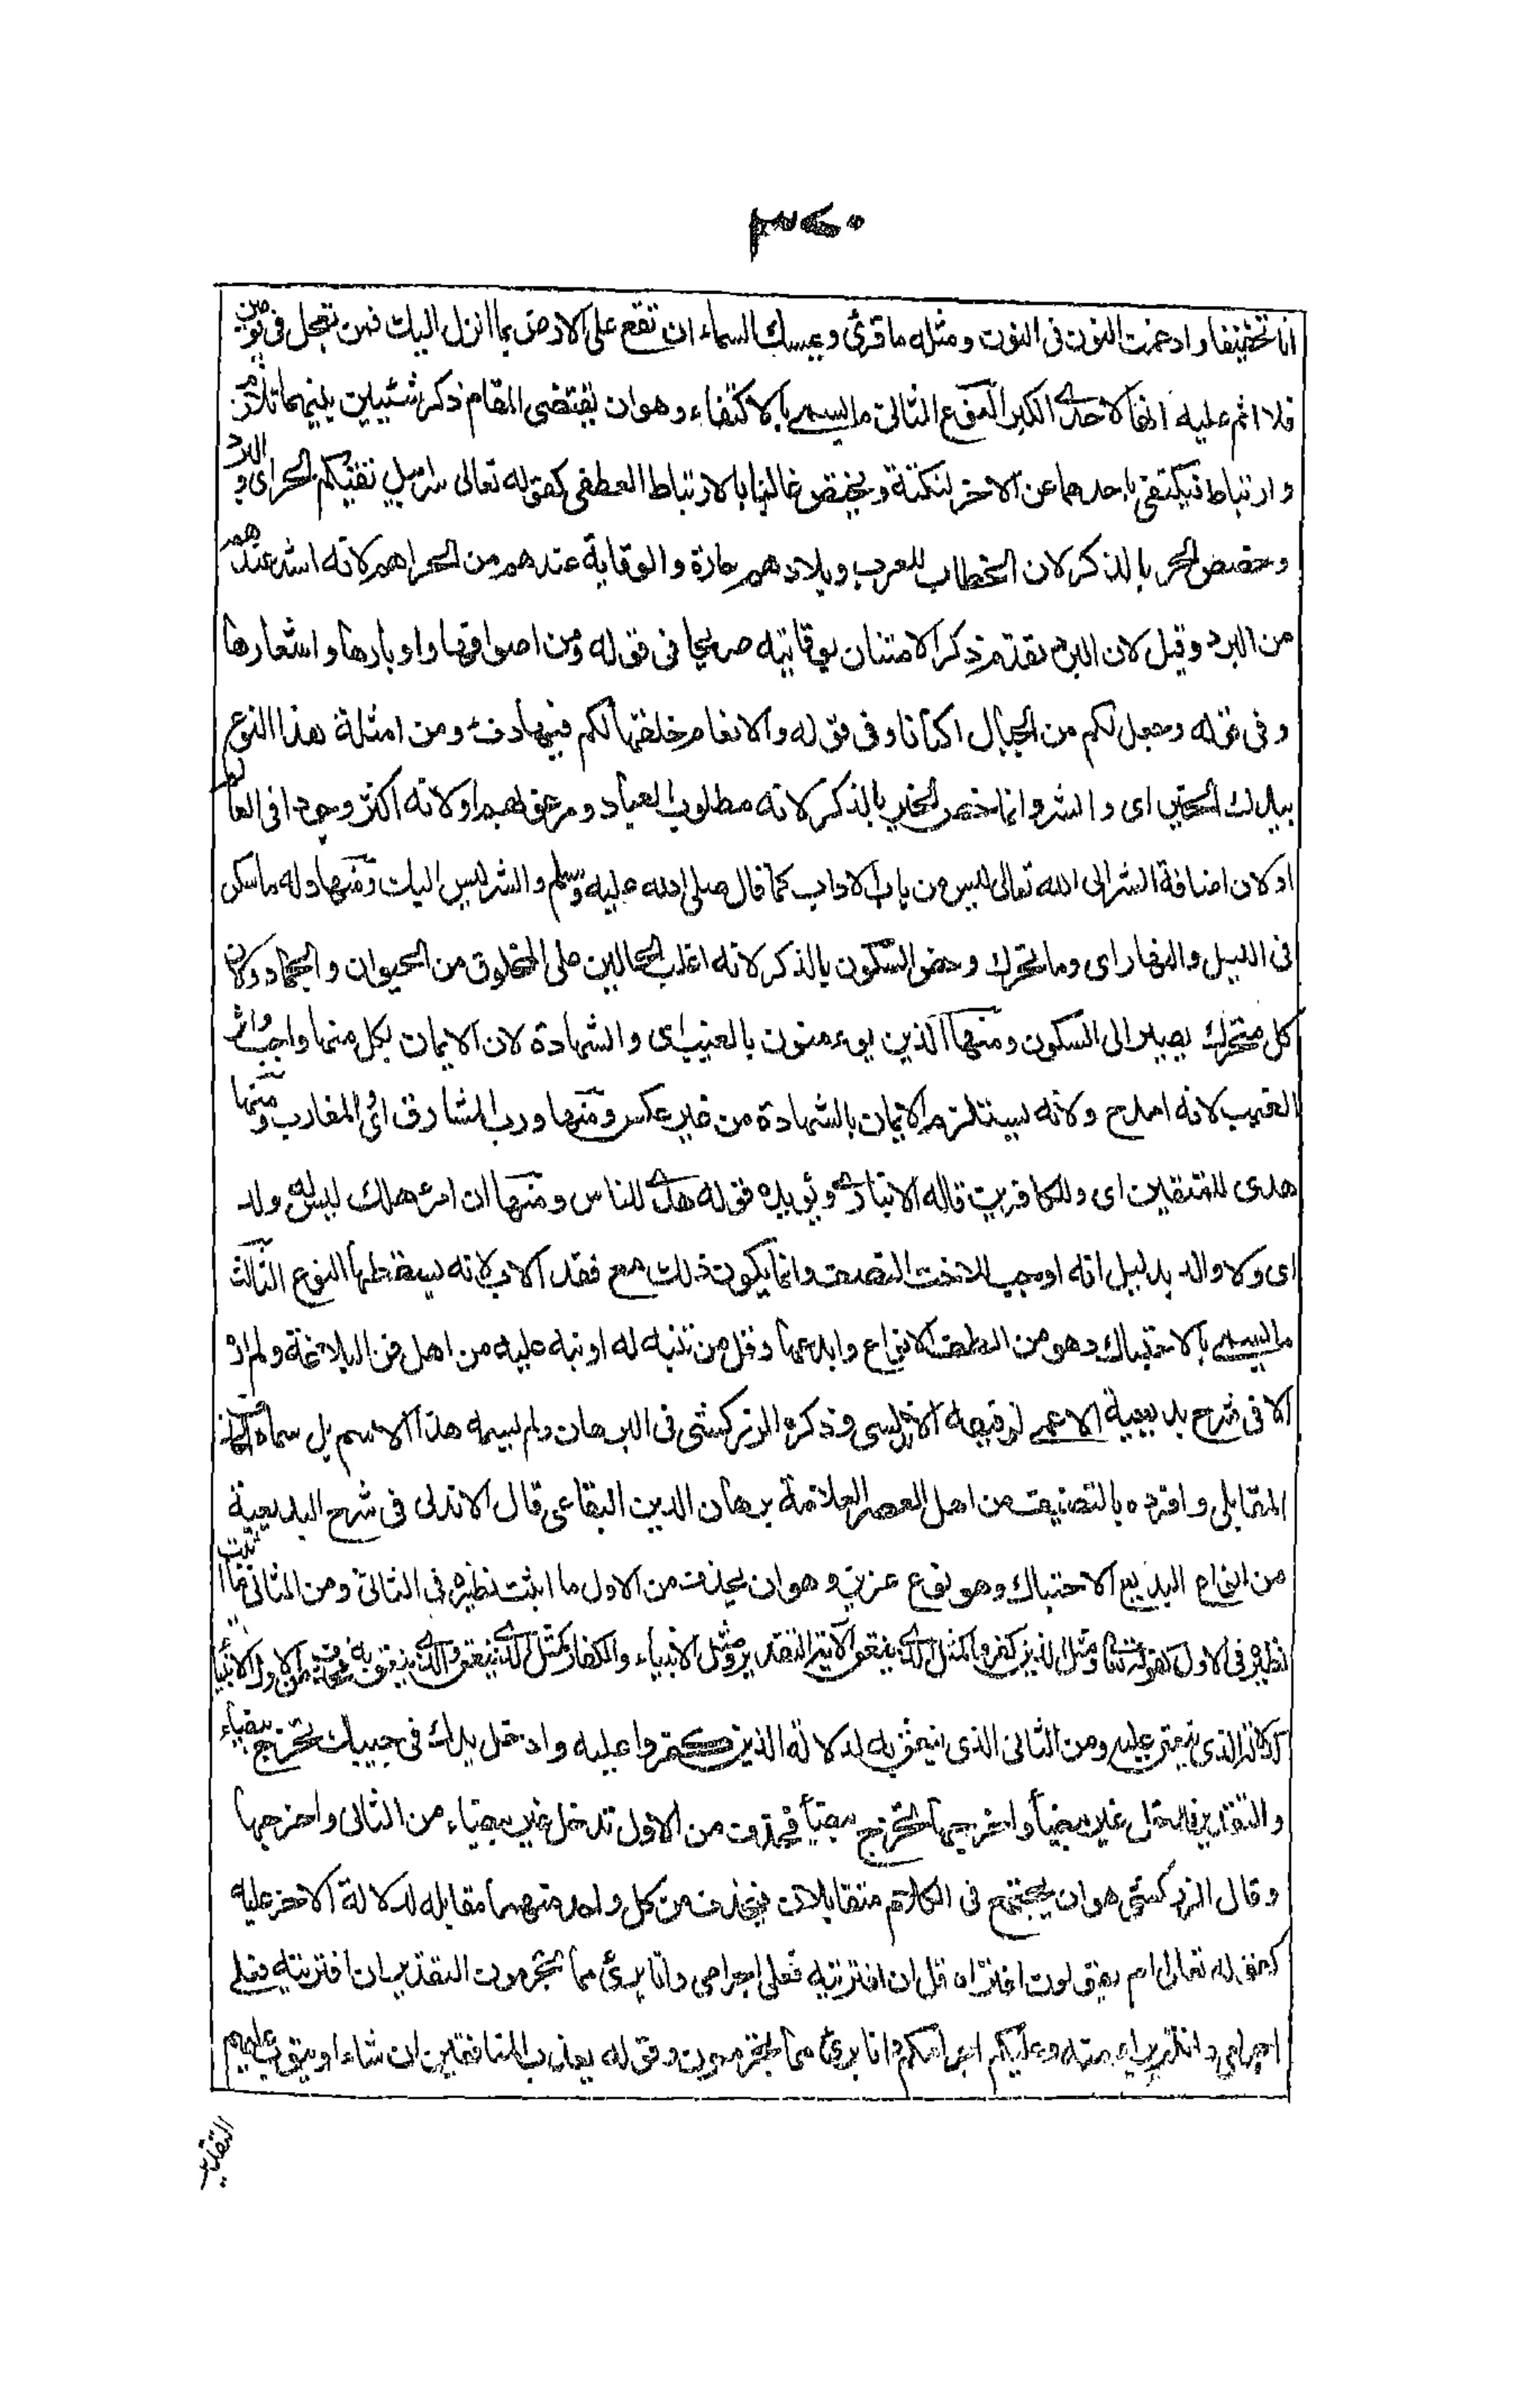 ٣٧٠
انا تخفيفا وادغمت النون فى النون ومثله ما قرئ ويمسك السماء ان تقع على الارض بما انزل اليك فمن تعجل فى يومين
فلا اثم عليه انها لاحدى الكبر النوع الثانى ما يسمى بالاكتفاء وهو ان يقتضى المقام ذكر شيئين بينهما تلازم
وارتباط فيكتفى باحدهما عن الاخر لنكتة ويختص غالبا بالارتباط العطفى كقوله تعالى سرابيل تقيكم الحر اى والبرد
وخصص الحر بالذكر لان الخطاب للعرب وبلادهم حارة والوقاية عندهم من الحر اهم لانه اشد عندهم
من البرد وقيل لان البرد تقدم ذكر الامتنان بوقايته صريحا فى قوله ومن اصوافها واوبارها واشعارها
وفى قوله وجعل لكم من الجبال اكنانا وفى قوله والانعام خلقها لكم فيها دفء ومن امثلة هذا النوع
بيدك الخير اى والشر وانما خص الخير بالذكر لانه مطلوب العباد ومرغوبهم او لانه اكثر وجودا فى العالم
او لان اضافة الشر الى الله تعالى ليس من باب الاداب كما قال صلى الله عليه وسلم والشر ليس اليك ومنها وله ما سكن
فى الليل والنهار اى وما تحرك وخص السكون بالذكر لانه اغلب الحالين على المخلوق من الحيوان والجماد ولان
كل متحرك يصير الى السكون ومنها الذين يؤمنون بالغيب اى والشهادة لان الايمان بكل منهما واجب واثر
الغيب لانه امدح ولانه يستلزم الايمان بالشهادة من غير عكس ومنها ورب المشارق اى والمغارب ومنها
هدى للمتقين اى وللكافرين قاله الانبارى ويؤيده قوله هدى للناس ومنها ان امرؤ هلك ليس له ولد
اى ولا والد بدليل انه اوجب للاخت النصف وانما يكون ذلك مع فقد الاب لانه يسقطها النوع الثالث
ما يسمى بالاحتباك وهو من الطف الانواع وابدعها وقل من تنبه له او نبه عليه من اهل فن البلاغة ولم اره
الا فى شرح بديعية الاعمى لرفيقه الاندلسى وذكره الزركشى فى البرهان ولم يسمه هذا الاسم بل سماه الحذف
المقابلى وافرده بالتصنيف من اهل العصر العلامة برهان الدين البقاعى قال الاندلى فى شرح البديعية
من انواع البديع الاحتباك وهو نوع عزيز وهو ان يحذف من الاول ما اثبت نظيره فى الثانى ومن الثانى ما اثبت
نظيره فى الاول كقوله تعالى ومثل الذين كفروا كمثل الذى ينعق الآية التقدير ومثل الانبياء والكفار كمثل الذى ينعق والذى ينعق به فحذف من الاول الانبياء
لدلالة الذى ينعق عليه ومن الثانى الذى ينعق به لدلالة الذين كفروا عليه وادخل يدك فى جيبك تخرج بيضاء
والتقدير تدخل غير بيضاء واخرجها تخرج بيضاء فحذف من الاول تدخل غير بيضاء ومن الثانى واخرجها
وقال الزركشى هو ان يجتمع فى الكلام متقابلان فيحذف من كل واحد منهما مقابله لدلالة الاخر عليه
كقوله تعالى ام يقولون افتراه قل ان افتريته فعلى اجرامى وانا برئ مما تجرمون التقدير ان افتريته فعلى
اجرامى وانتم براء منه وعليكم اجرامكم وانا برئ مما تجرمون وقوله يعذب المنافقين ان شاء او يتوب عليهم
التقدير